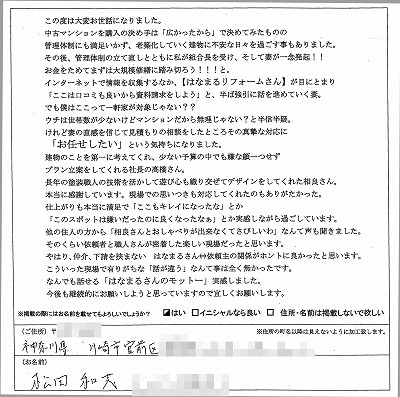 この度は大変お世話になりました。
中古マンションを購入の決め手は「広かったから」で決めてみたものの
管理体制にも満足いかず、老築化していく建物に不安な日々を過ごす事もありました。
その後、管理体制の立て直しとともに私が組合長を受け、そして妻が一念発起！！
お金をためてまずは大規模修繕に踏み切ろう！！！と。
インターネットで情報を収集するなか、【はなまるリフォームさん】が目にとまり
「ここは口コミも良いから資料請求をしよう」と、半ば強引に話を進めていく妻。
でも僕はここって一軒家が対象じゃない？？
ウチは世帯数が少ないけどマンションだから無理じゃない？と半信半疑。
けれど妻の直感を信じて見積もりの相談をしたところその真摯な対応に
「お任せしたい」という気持ちになりました。
建物のことを第一に考えてくれ、少ない予算の中でも嫌な顔一つせず
プラン立案をしてくれる社長の髙橋さん。
長年の塗装職人の技術を活かして遊び心も織り交ぜてデザインをしてくれた相良さん。
本当に感謝しています。現場での思いつきも対応してくれたのもありがたかった。
仕上がりも本当に満足で「ここもキレイになったな」とか
「このスポットは嫌いだったのに良くなったなぁ」とか実感しながら過ごしています。
他の住人の方から「相良さんとおしゃべりが出来なくてさびしいわ」なんて声も聞きました。
そのくらい依頼者と職人さんが密着した楽しい現場だったと思います。
やはり、仲介、下請を挟まない　はなまるさん⇔依頼主の関係がホントに良かったと思います。
こういった現場で有りがちな「話が違う」なんて事は全く無かったです。
なんでも話せる「はなまるさんのモットー」実感しました。
今後も継続的にお願いしようと思っていますので宜しくお願いします。
※掲載の際にはお名前を載せてもよろしいでしょうか？　☑はい　☐イニシャルなら良い　☐ 住所・名前は掲載しないで欲しい
（ご住所）〒　※住所の町名以降は見えないように加工致します。
神奈川県 川崎市宮前区
（お名前）
松田 和